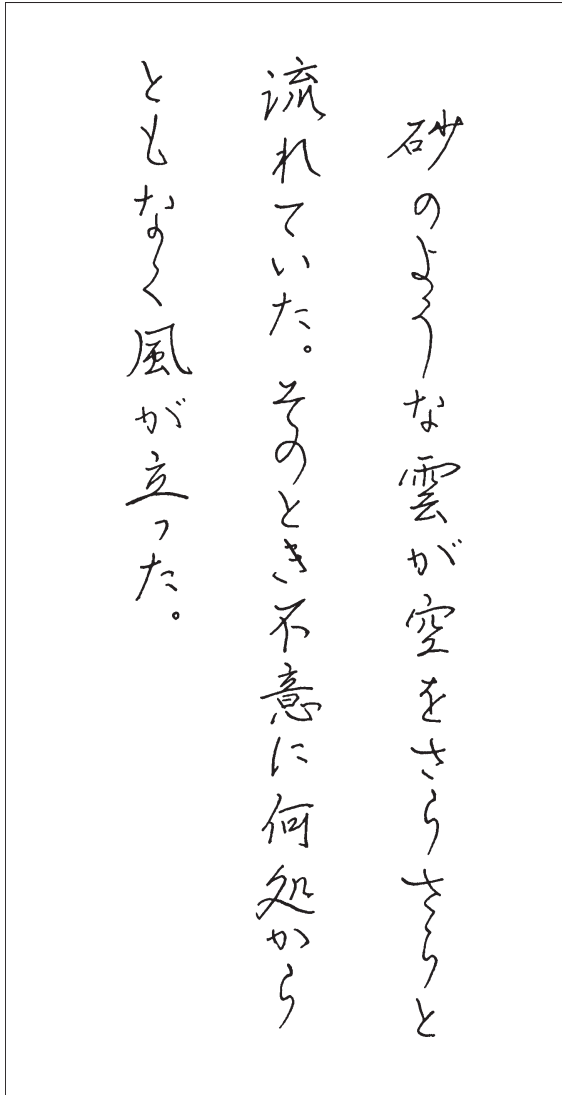 砂のような雲が空をさらさらと
流れていた。そのとき不意に何処から
ともなく風が立った。